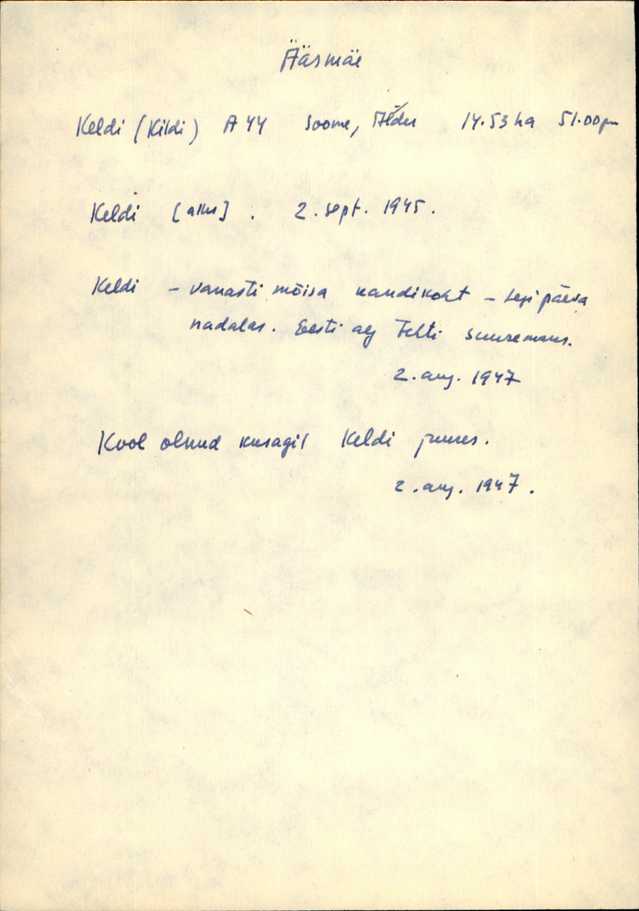 Ääsmäe
Keldi (Kildi) A 44 Soome, 14.53 ha 51.00
Keldi [alks]. 2. sept. 1945.
Keldi – vanasti mõisa kandikoht – päeva
nädalas. Eesti aeg suuremaks.
2. aug. 1947
Kool olnud kusagil Keldi juures.
2. aug. 1947.